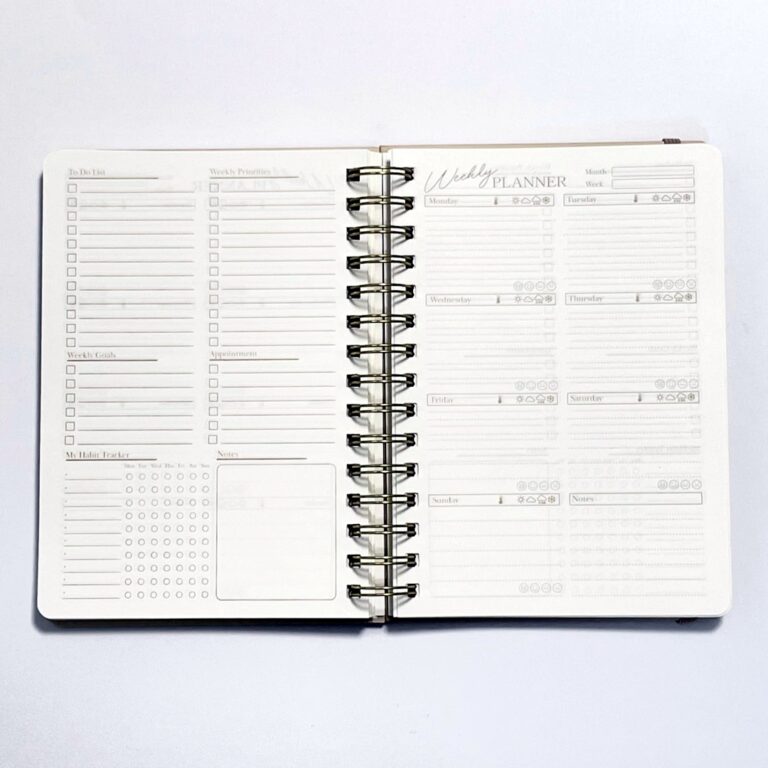 To Do List
Weekly Priorities
Weekly Goals
Appointment
My Habit Tracker
Mon Tue Wed Thu Fri Sat Sun
Notes
Weekly PLANNER
Month
Week
Monday
Tuesday
Wednesday
Thursday
Friday
Saturday
Sunday
Notes